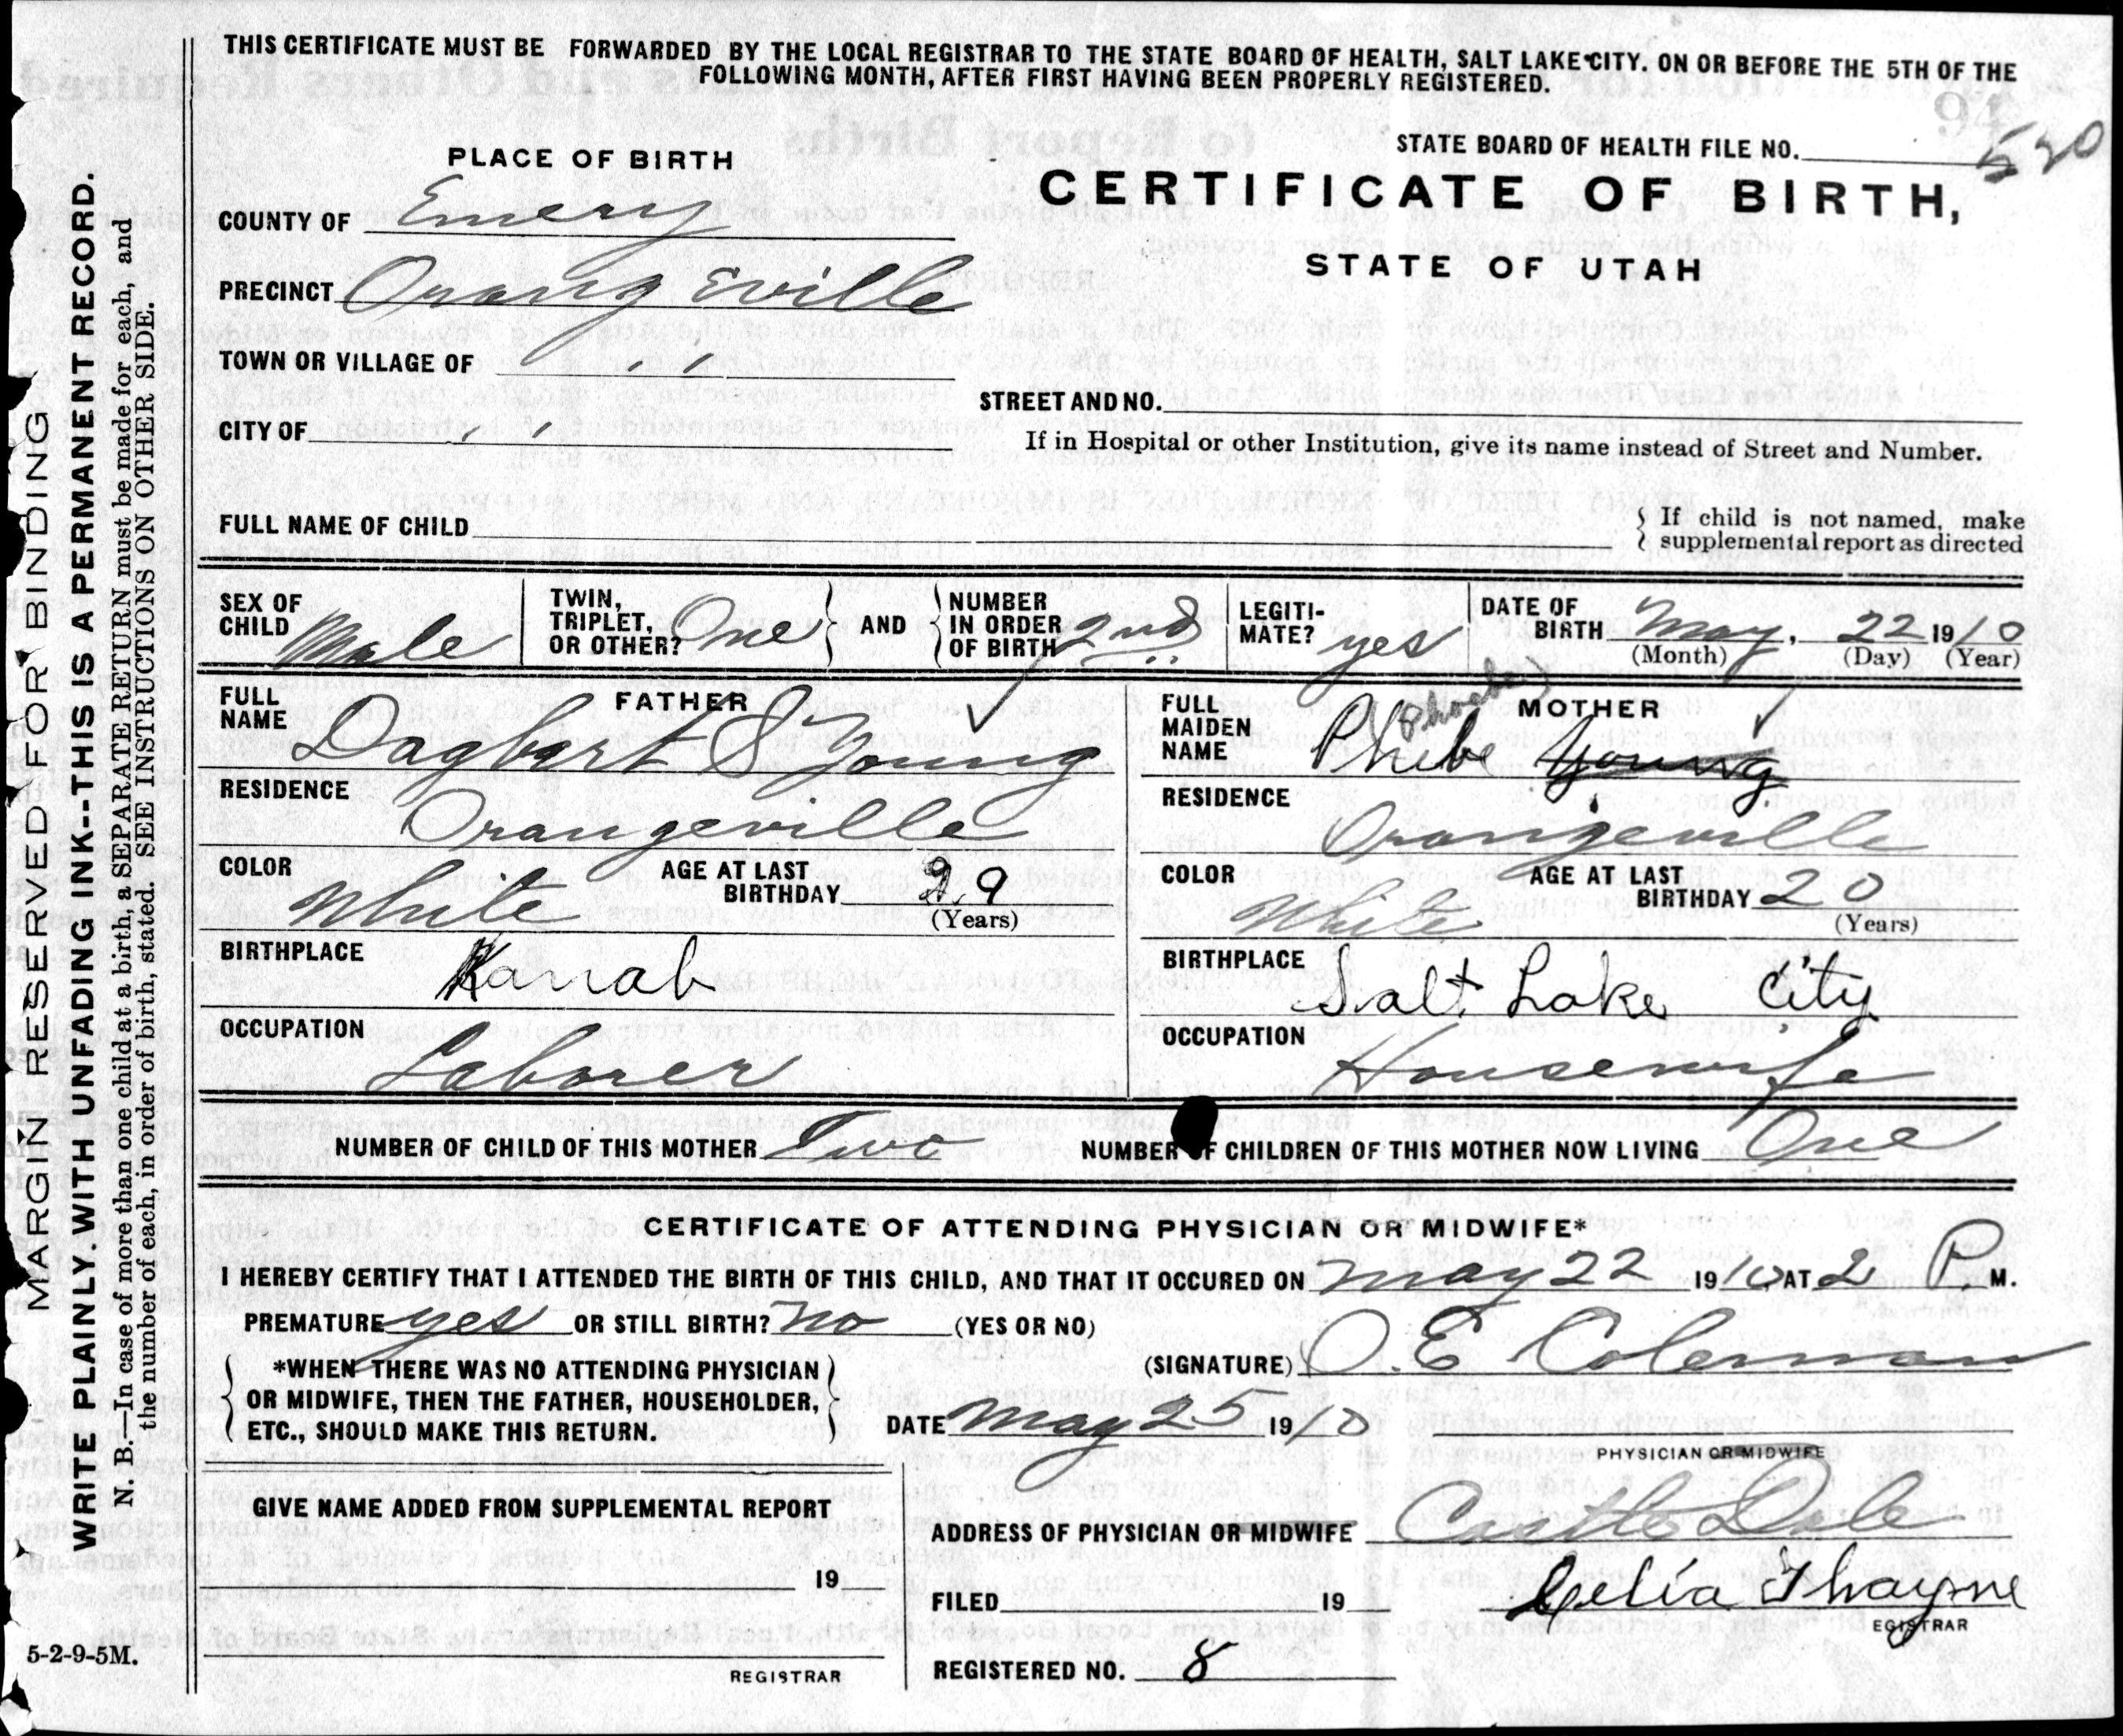 THIS CERTIFICATE MUST BE FORWARDED BY THE LOCAL REGISTRAR TO THE STATE BOARD OF HEALTH, SALT LAKE CITY. ON OR BEFORE THE 5TH OF THE
FOLLOWING MONTH, AFTER FIRST HAVING BEEN PROPERLY REGISTERED.
94
PLACE OF BIRTH
STATE BOARD OF HEALTH FILE NO. 520
CERTIFICATE OF BIRTH,
STATE OF UTAH
COUNTY OF Emery
PRECINCT Orang Eville
TOWN OR VILLAGE OF " "
STREET AND NO.
CITY OF " "
If in Hospital or other Institution, give its name instead of Street and Number.
FULL NAME OF CHILD
If child is not named, make
supplemental report as directed
SEX OF CHILD Male
TWIN, TRIPLET, OR OTHER? One AND NUMBER IN ORDER OF BIRTH 2nd
LEGITI-MATE? yes
DATE OF BIRTH May, 22 1910
(Month) (Day) (Year)
FATHER
FULL NAME Dagbart S Young
RESIDENCE Orangeville
COLOR White AGE AT LAST BIRTHDAY 29
(Years)
BIRTHPLACE Kanab
OCCUPATION Laborer
MOTHER
(Phoebe)
FULL MAIDEN NAME Phebe Young
RESIDENCE Orangeville
COLOR White AGE AT LAST BIRTHDAY 20
(Years)
BIRTHPLACE Salt Lake City
OCCUPATION Housewife
NUMBER OF CHILD OF THIS MOTHER Two NUMBER OF CHILDREN OF THIS MOTHER NOW LIVING One
CERTIFICATE OF ATTENDING PHYSICIAN OR MIDWIFE*
I HEREBY CERTIFY THAT I ATTENDED THE BIRTH OF THIS CHILD, AND THAT IT OCCURED ON May 22 1910 AT 2 P M.
PREMATURE yes OR STILL BIRTH? No (YES OR NO)
*WHEN THERE WAS NO ATTENDING PHYSICIAN
OR MIDWIFE, THEN THE FATHER, HOUSEHOLDER,
ETC., SHOULD MAKE THIS RETURN.
(SIGNATURE) O. E Coleman
DATE May 25 1910
PHYSICIAN OR MIDWIFE
GIVE NAME ADDED FROM SUPPLEMENTAL REPORT
19
REGISTRAR
ADDRESS OF PHYSICIAN OR MIDWIFE Castle Dale
FILED 19 Celia Thayne
EGISTRAR
REGISTERED NO. 8
5-2-9-5M.
MARGIN RESERVED FOR BINDING
WRITE PLAINLY. WITH UNFADING INK--THIS IS A PERMANENT RECORD.
N. B.—In case of more than one child at a birth, a SEPARATE RETURN must be made for each, and
the number of each, in order of birth, stated. SEE INSTRUCTIONS ON OTHER SIDE.